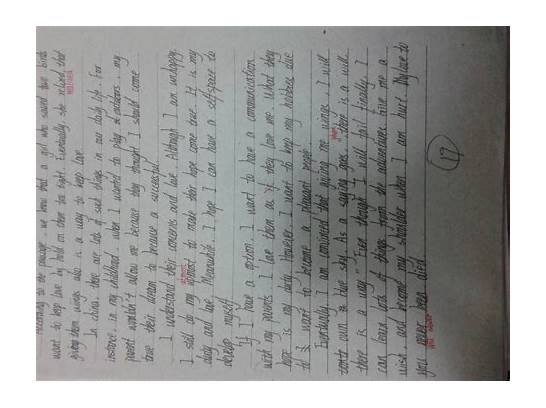 According to the passage, we know that a girl who saved two birds
want to help love by hold on them too tight. Eventually, she relized that
realized
giving them wings also is a way to help love.
In china, there are lots of such things in our daily life. For
instance, in my childhood, when I wanted to play in outdoors, my
parent wouldn't allow me because they thought I should come
true their dream to became a successful.
I understand their concerns and love. Although I am unhappy,
I still do my utmost to make their hope come true. It is my
duty and love. Meanwhile, I hope I can have a selfspace to
develop myself.
If I have a option, I want to have a communication
with my parents. I love them as if they love me. What they
hope is my duty. However, I want to keep my hobbies
to want to become a pleasant people.
Eventually, I am convinced that giving me wings, I will
own a blue sky. As a saying goes, "there is a will,
there is a way." Even though I will fail finally, I
can learn lots of things from the adventures. Give me a
wish and become my shoulder when I am hurt. My love to
you never been died.
17